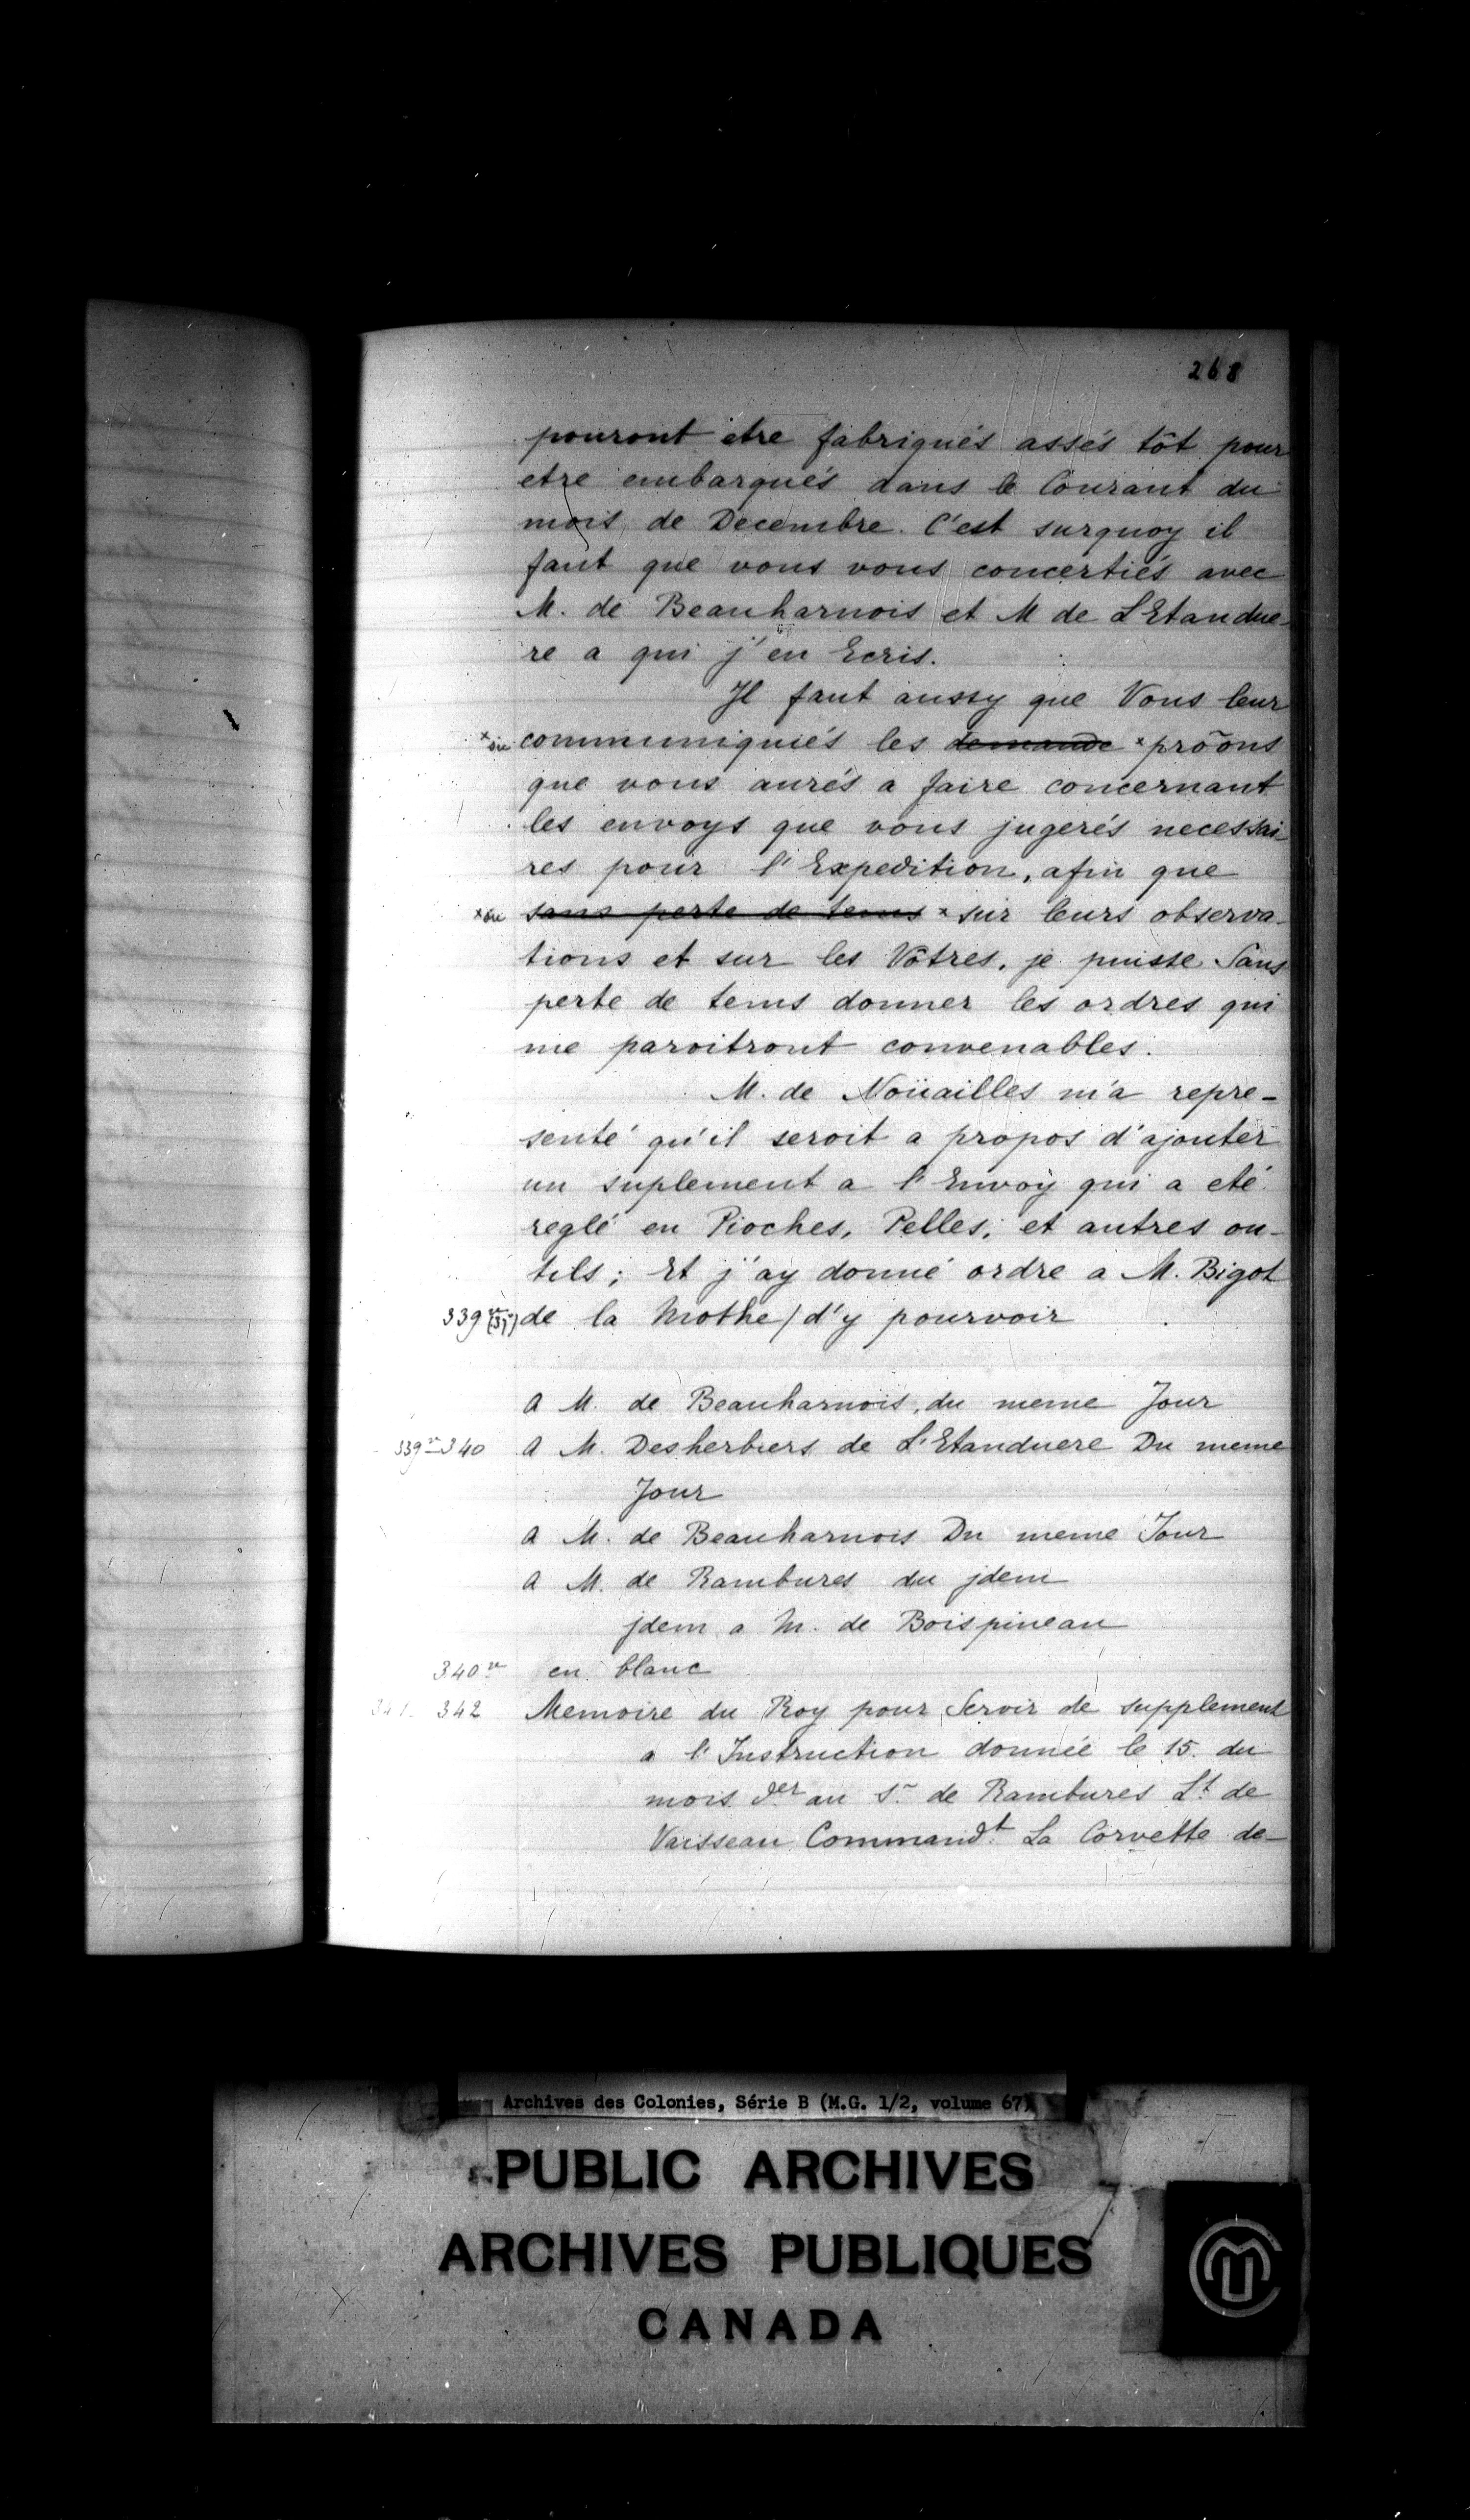 268
pouront etre fabriqués assés tôt pour
etre embarqués dans le Courant du
mois de Decembre. C'est surquoy il
faut que vous vous concertiés avec
M. de Beauharnois et M de L'Etandue-
re a qui j'en Ecris.
Il faut aussy que Vous leur
communiquiés les demande x prõons
que vous aurés a faire concernant
les envoys que vous jugerés necessai-
res pour l'Expedition, afin que
sans perte de tems x sur leurs observa-
tions et sur les Vôtres, je puisse Sans
perte de tems donner les ordres qui
me paroitront convenables.
M. de Noüailles m'a repre-
senté qu'il seroit a propos d'ajouter
un suplement a l'Envoy qui a eté
reglé en Pioches, Pelles, et autres ou-
tils; Et j'ay donné ordre a M. Bigot
339 de la Mothe / d'y pourvoir
A M. de Beauharnois, du meme Jour
339vo-340 A M. Desherbiers de L'Etanduere Du meme
Jour
A M. de Beauharnois Du meme Jour
A M. de Rambures du jdem
jdem a M. de Boispineau
340vo en blanc
341-342 Memoire du Roy pour Servir de supplement
a l'Instruction donnée le 15. du
mois der au Sr de Rambures Lt de
Vaisseau Commandt La Corvette de-
Archives des Colonies, Série B (M.G. 1/2, volume 67)
PUBLIC ARCHIVES
ARCHIVES PUBLIQUES
CANADA